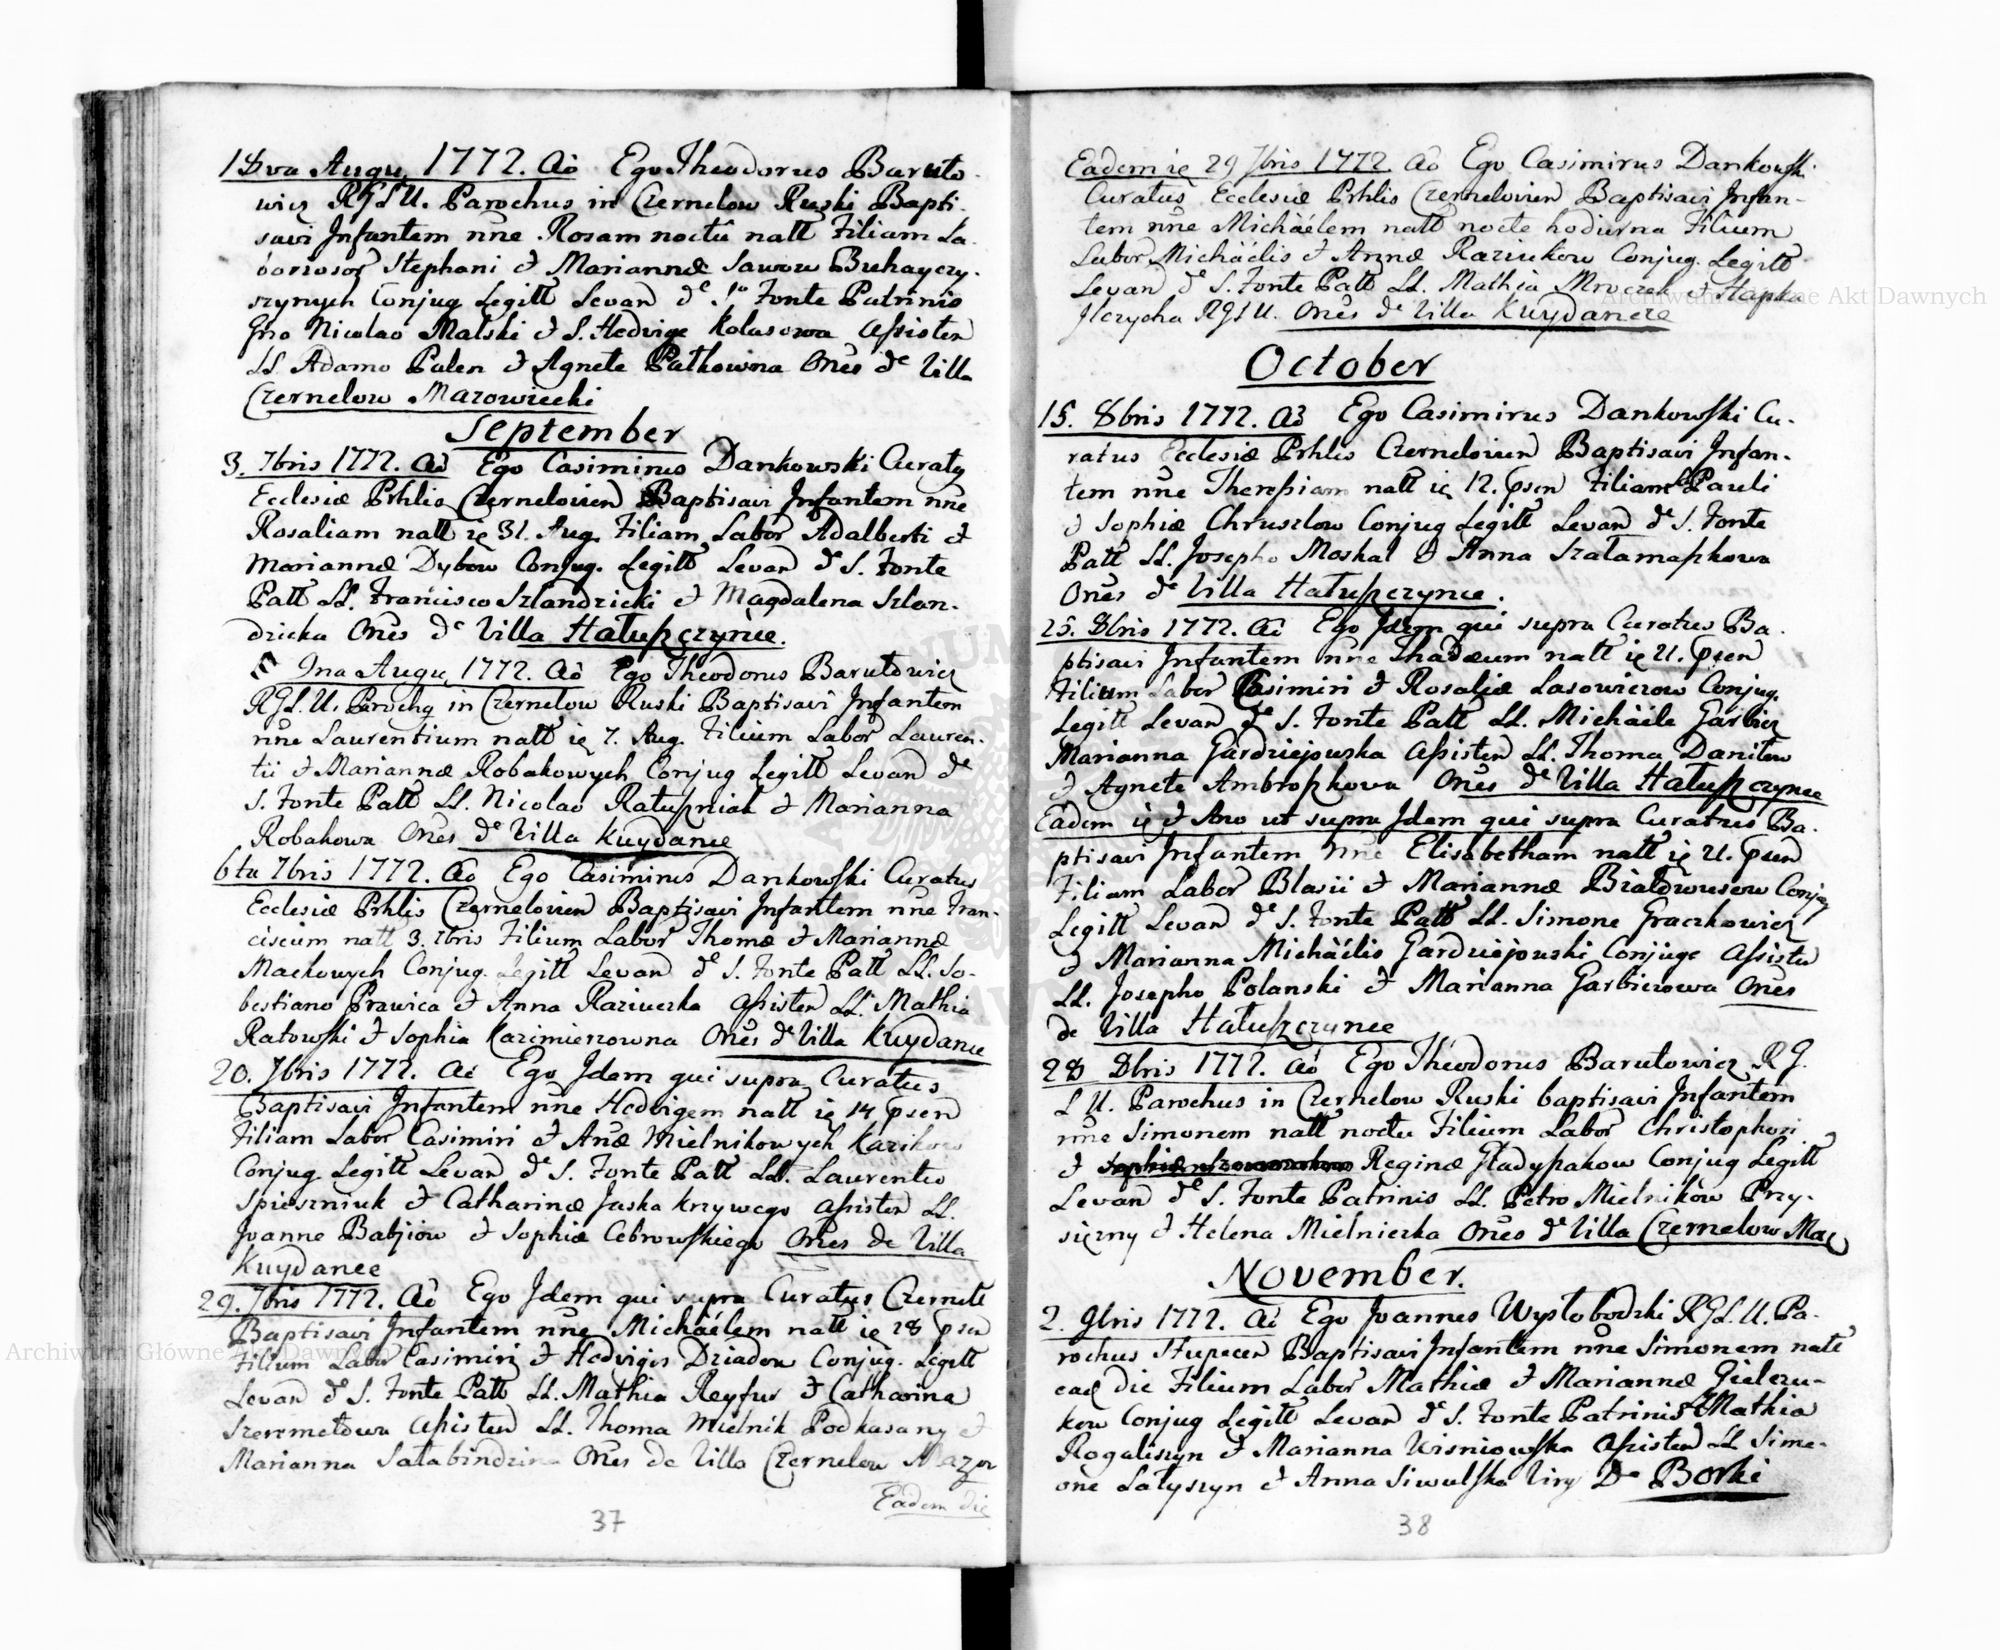 18va Augu, 1772. Aô Ego Theodorus Baruto-
wicz RGLU. Parochus in Czernelow Ruski Bapti-
savi Infantem nñe Rosam noctû natt Filiam La-
boriosor Stephani & Mariannæ Sawow
szynych Conjug Legitt Levan dᵉ Sᵗᵒ Fonte Patrinis
Gno Nicolao Malski & S. Hedvige Kolasowa Assisten
LL. Adamo Palen & Agnete Patkowna Onēs dᵉ Villa
Czernelow Mazowiecki
September
3. 7bris 1772. Aô Ego Casimirus Dankowski Curatq
Ecclesiæ Prhlis Czernelovien Baptisavi Infantem nñe
Rosaliam natt ie 31. Aug. Filiam Labor Adalberti &
Mariannæ Dybow Conjug. Legitt Levan dᵉ S. Fonte
Patt LL. Francisco Szlandzicki & Magdalena Szlan-
dzicka Onēs dᵉ Villa Hałuszczynce.
Ina Augu, 1772. Aô Ego Theodorus Barutowicz
RGL.U. Parochq in Czernelow Ruski Baptisavi Infantem
nñe Laurentium natt ie 7. Aug. Filium Labor Lauren-
tii & Mariannæ Robakowych Conjug Legitt Levan dᵉ
S. Fonte Patt LL. Nicolao Ratuszniak & Marianna
Robakowa Onēs dᵉ Villa Kuydance
6ta 7bris 1772. Aô Ego Casimirus Dankowski Curatus
Ecclesiæ Prhlis Czernelovien Baptisavi Infantem nñe Fran-
ciscum natt 3. 7bris Filium Labor Thomæ & Mariannæ
Mackowych Conjug. Legitt Levan dᵉ S. Fonte Patt LL. Se-
bestiano Prawica & Anna Raziuczka Assisten LL. Mathia
Ratowski & Sophia Kazimierzowna Onēs dᵉ Villa Kuydance
20. 7bris 1772. Aô Ego Idem qui supra Curatus
Baptisavi Infantem nñe Hedvigem natt ie 14 psen
Filiam Labor Casimiri & Anæ Mielnikowych
Conjug. Legitt Levan dᵉ S. Fonte Patt LL. Laurentio
Spieszniuk & Catharinæ Jaska Krzywego Assisten LL.
Joanne Babjiow & Sophiæ Cebrowskiego Onēs de Villa
Kuydance
29. 7bris 1772. Aô Ego Idem qui supra Curatus Czernele
Baptisavi Infantem nñe Michàélem natt ie 28 psen
Filium Labor Casimiri & Hedvigis Dziadow Conjug. Legitt
Levan dᵉ S. Fonte Patt LL. Mathia Reyfur & Catharina
Szeremetowa Assisten LL. Thoma Mielnik Podkasany &
Marianna Onēs de Villa Czernelow Mazow
Eadem die
37
Eadem ie 29 7bris 1772. Aô Ego Casimirus Dankowski
Curatus Ecclesiæ Prhlis Czernelovien Baptisavi Infan-
tem nñe Michàélem natt nocte hodierna Filium
Labor Michàélis & Annæ Raziukow Conjug. Legitt
Levan dᵉ S. Fonte Patt LL. Mathia Mroczek & Hapka
Ilczycha RGLU. Onēs dᵉ Villa Kuydance
October
15. 8bris 1772. Aô Ego Casimirus Dankowski Cu-
ratus Ecclesiæ Prhlis Czernelovien Baptisavi Infan-
tem nñe Theressiam natt ie 12. psen Filiam Pauli
& Sophiæ Chruszlow Conjug Legitt Levan dᵉ S. Fonte
Patt LL. Josepho Moskal & Anna Szałamaszkowa
Onēs dᵉ Villa Hałuszczynce.
25. 8bris 1772. Aô Ego Idem qui supra Curatus Ba-
ptisavi Infantem nñe Thadæum natt ie 21. psen
Filium Labor Casimiri & Rosaliæ Lasowiczow Conjug.
Legitt Levan dᵉ S. Fonte Patt LL. Michàéle Garbicz
Marianna Gardziejowzka Assisten LL. Thoma Daniłow
& Agnete Ambroszkowa Onēs dᵉ Villa Hałuszczynce
Eadem ie & Ano ut supra Idem qui supra Curatus Ba-
ptisavi Infantem nñe Elisabetham natt ie 21. psen
Filiam Labor Blasii & Mariannæ Białowusow Conjug
Legitt Levan dᵉ S. Fonte Patt LL. Simone Graczkowicz
& Marianna Michàélis Gardziejowski Conjuge Assisten
LL. Josepho Polanski & Marianna Garbiczowa Onēs
de Villa Hałuszczynce
28 8bris 1772. Aô Ego Théodorus Barutowicz RG.
L U. Parochus in Czernelow Ruski baptisavi Infantem
nñe Simonem natt noctu Filium Labor Christophori
& Reginæ Gładyszakow Conjug Legitt
Levan dᵉ S. Fonte Patrinis LL. Petro Mielnikow Przy-
siężny & Helena Mielniczka Onēs dᵉ Villa Czernelow Maz
November.
2. 9bris 1772. Aô Ego Joannes Wysłobodzki RGL.U. Pa-
rochus Stupecen Baptisavi Infantem nñe Simonem nate
eaq die Filium Labor Mathiæ & Mariannæ Gielczu-
kow Conjug Legitt Levan dᵉ S. Fonte Patrinis Mathia
Rogaliszyn & Marianna Wisniowska Assisten LL Sime-
one Łatyszyn & Anna Siwulska Dᵉ Borki
38
Archiwum Główne Akt Dawnych
Archiwum Główne Akt Dawnych